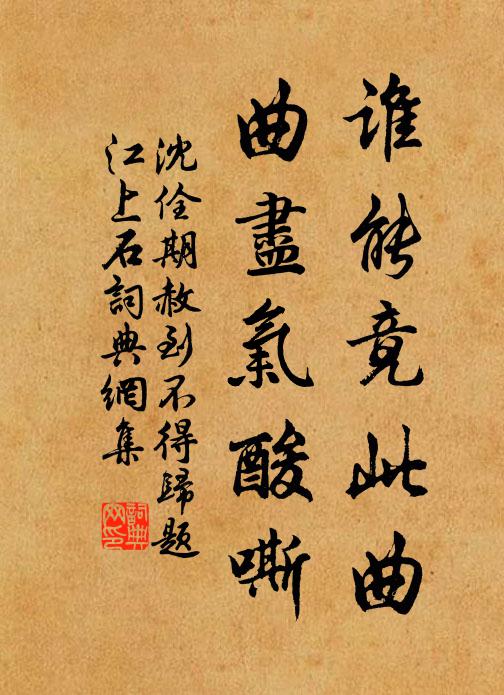 誰能竟此曲
曲盡氣酸嘶
沈佺期赦到不得歸題
江上石詞典網集
詞典
网印